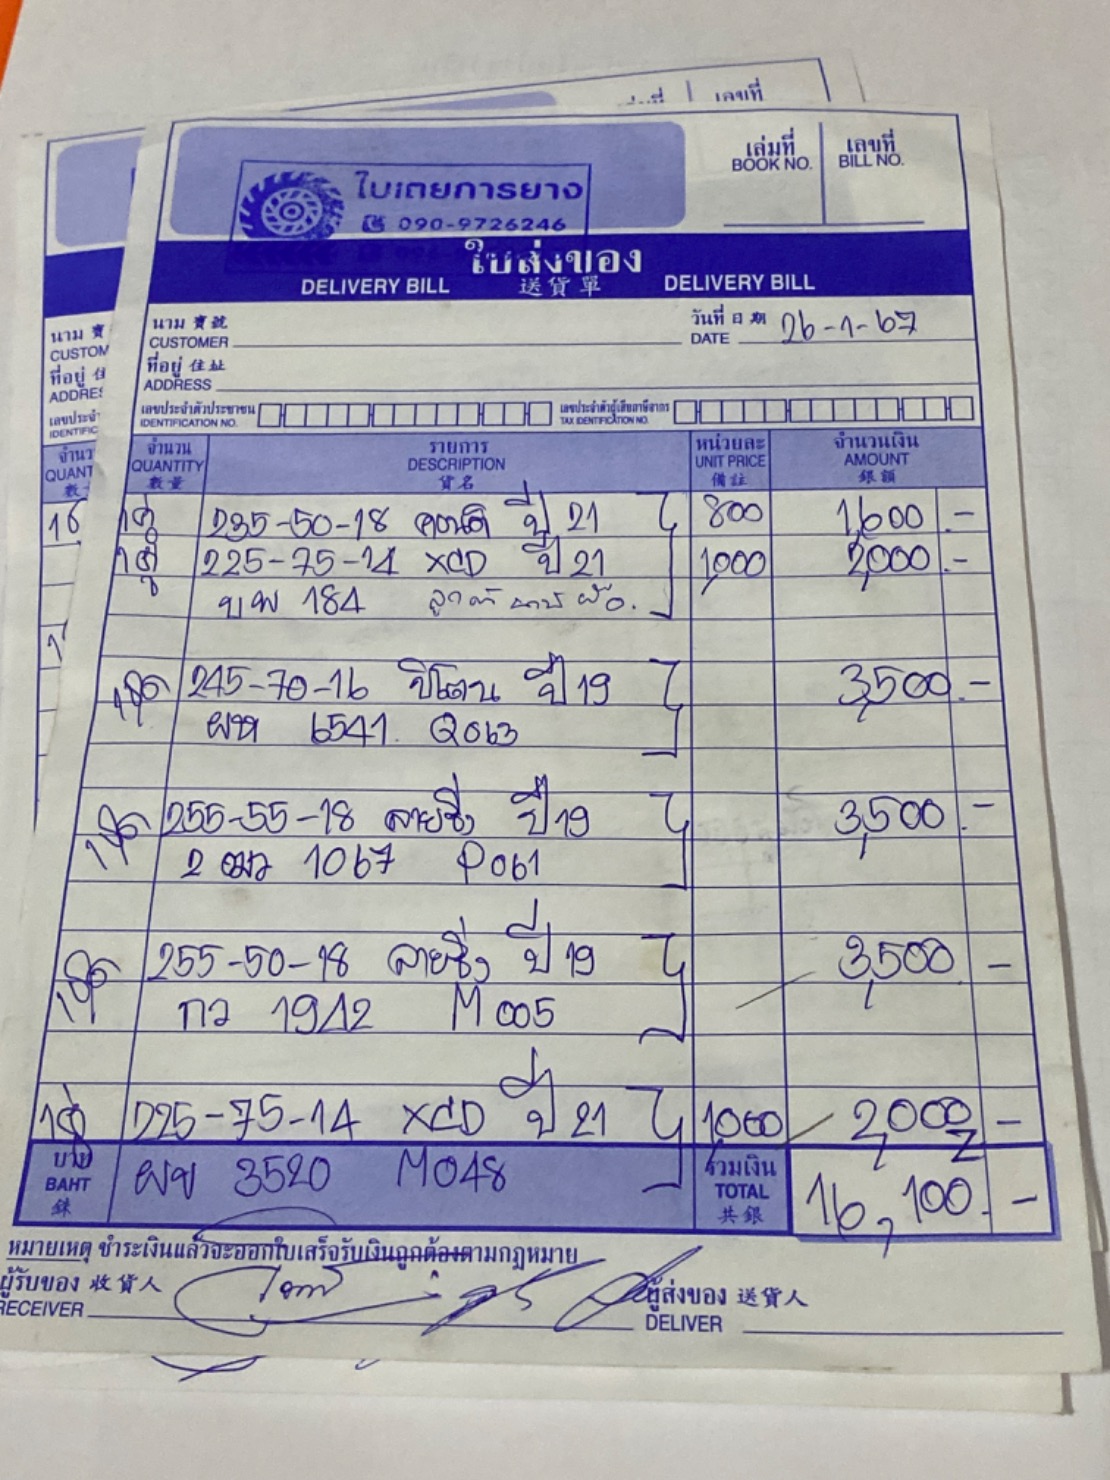 เลขที่
เล่มที่ เลขที่
BOOK NO. BILL NO.
ใบเตยการยาง
090-9726246
ใบส่งของ
DELIVERY BILL 送貨單 DELIVERY BILL
นาม 寶號 วันที่ 日期 26-1-67
CUSTOMER DATE
ที่อยู่ 住址
ADDRESS
เลขประจำตัวประชาชน เลขประจำตัวผู้เสียภาษีอากร
IDENTIFICATION NO. TAX IDENTIFICATION NO.
จำนวน รายการ หน่วยละ จำนวนเงิน
QUANTITY DESCRIPTION UNIT PRICE AMOUNT
數量 貨名 備註 銀額
1คู่ 235-50-18 คอนติ ปี 21 800 1,600 .-
1คู่ 225-75-14 XCD ปี 21 1,000 2,000 .-
บพ 184
1ชุด 245-70-16 ปีโตน ปี 19 3,500 .-
ผท 6541 Q063
1ชุด 255-55-18 ลายซิ่ง ปี 19 3,500 .-
2 ฒว 1067 P061
1ชุด 255-50-18 ลายซิ่ง ปี 19 3,500 -
กว 1942 M005
1คู่ 225-75-14 XCD ปี 21 1,000 2,000 -
บาท ผข 3520 M048 รวมเงิน 16,100 .-
BAHT TOTAL
銖 共銀
หมายเหตุ ชำระเงินแล้วจะออกใบเสร็จรับเงินถูกต้องตามกฎหมาย
ผู้รับของ 收貨人 ผู้ส่งของ 送貨人
RECEIVER DELIVER